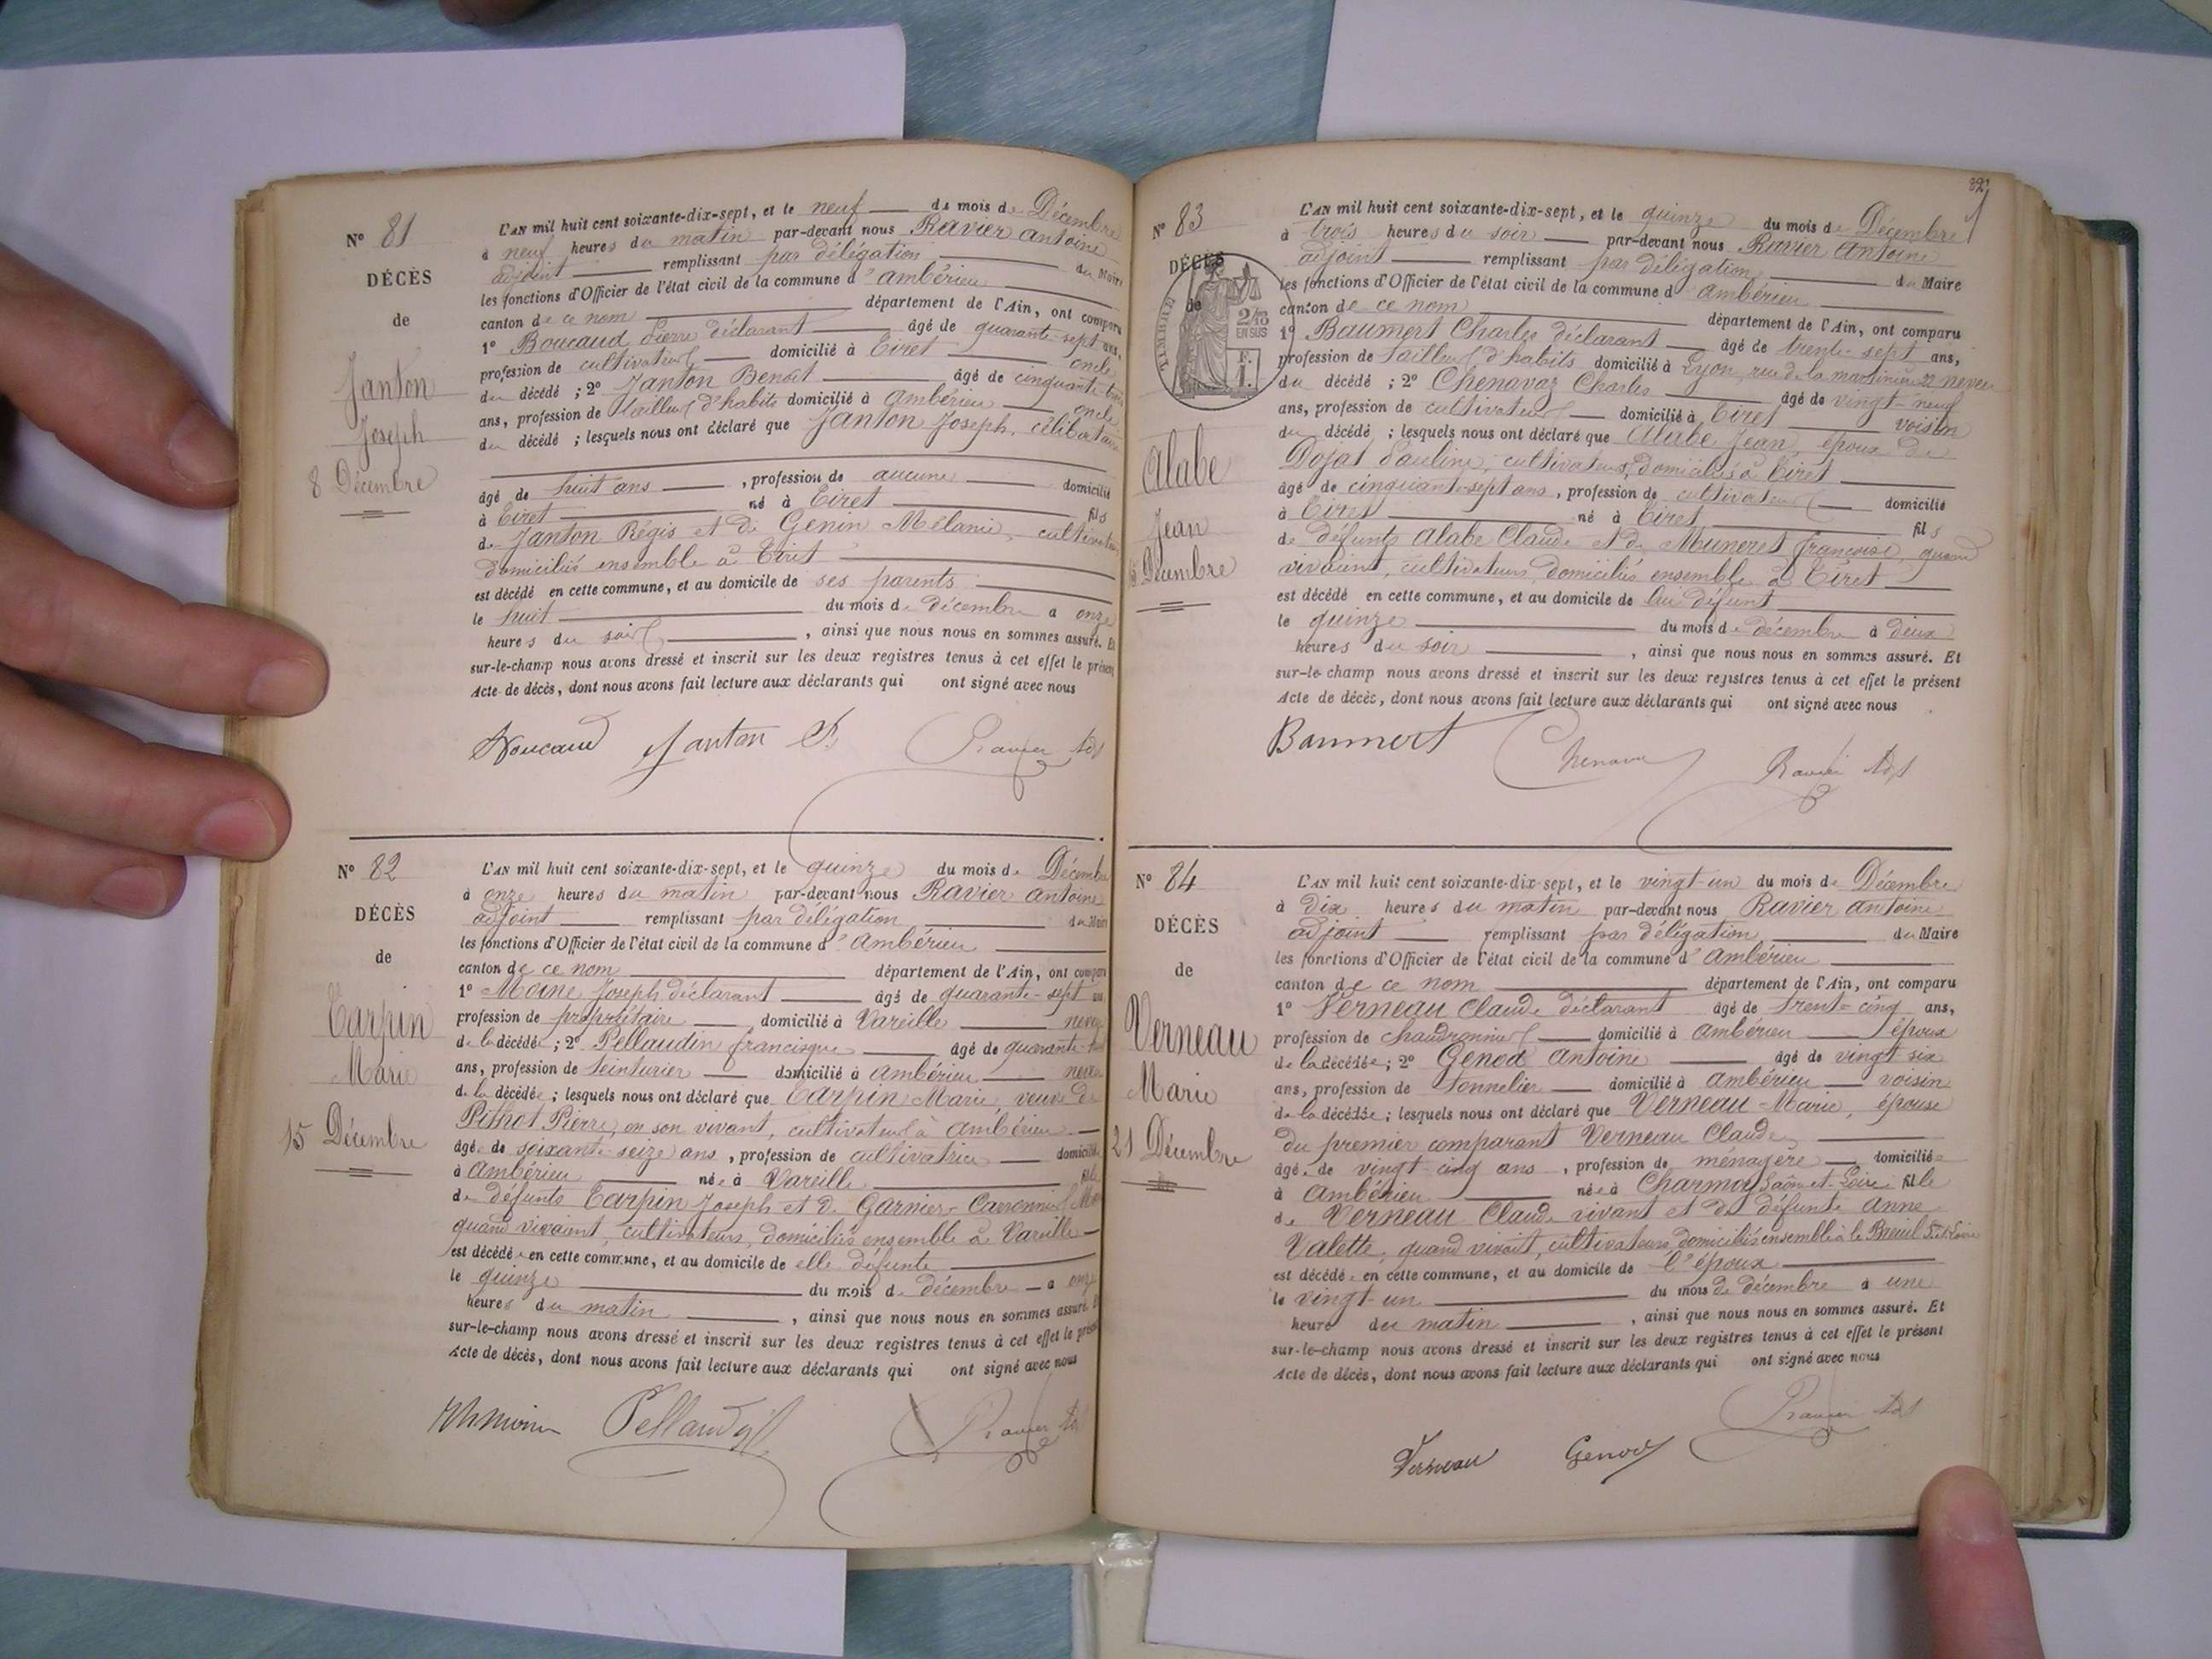 N° 81
DÉCÈS
de
Janton
Joseph
8 Décembre
L'AN mil huit cent soixante-dix-sept, et le neuf du mois de Décembre
à neuf heures du matin par-devant nous Ravier Antoine
adjoint remplissant par délégation du Maire
les fonctions d'Officier de l'état civil de la commune d'Ambérieu
canton de ce nom département de l'Ain, ont comparu
1° Boucaud Pierre déclarant âgé de quarante-sept ans,
profession de cultivateur domicilié à Tiret oncle
du décédé ; 2° Janton Benoit âgé de cinquante-trois
ans, profession de tailleur d'habits domicilié à Ambérieu oncle
du décédé ; lesquels nous ont déclaré que Janton Joseph, célibataire
âgé de huit ans, profession de aucune domicilié
à Tiret né à Tiret fils
de Janton Régis et de Genin Mélanie, cultivateurs
domiciliés ensemble à Tiret
est décédé en cette commune, et au domicile de ses parents
le huit du mois de décembre à onze
heures du soir, ainsi que nous nous en sommes assuré. Et
sur-le-champ nous avons dressé et inscrit sur les deux registres tenus à cet effet le présent
Acte de décès, dont nous avons fait lecture aux déclarants qui ont signé avec nous
Boucaud Janton B. Ravier Adj
N° 82
DÉCÈS
de
Tarpin
Marie
15 Décembre
L'AN mil huit cent soixante-dix-sept, et le quinze du mois de Décembre
à onze heures du matin par-devant nous Ravier Antoine
adjoint remplissant par délégation du Maire
les fonctions d'Officier de l'état civil de la commune d'Ambérieu
canton de ce nom département de l'Ain, ont comparu
1° Moine Joseph déclarant âgé de quarante-sept ans
profession de propriétaire domicilié à Vareille neveu
de la décédée ; 2° Pellaudin Francisque âgé de quarante
ans, profession de teinturier domicilié à Ambérieu neveu
de la décédée ; lesquels nous ont déclaré que Tarpin Marie veuve de
Pithot Pierre, en son vivant, cultivateur à Ambérieu
âgée de soixante-seize ans, profession de cultivatrice domiciliée
à Ambérieu née à Vareille fille
de défunts Tarpin Joseph et de Garnier
quand vivaient, cultivateurs, domiciliés ensemble à Vareille
est décédée en cette commune, et au domicile de elle défunte
le quinze du mois de décembre à onze
heures du matin, ainsi que nous nous en sommes assuré. Et
sur-le-champ nous avons dressé et inscrit sur les deux registres tenus à cet effet le présent
Acte de décès, dont nous avons fait lecture aux déclarants qui ont signé avec nous
Pellaudin Ravier Adj
82
N° 83
DÉCÈS
de
TIMBRE
2/10
EN SUS
F.
1.
Alabe
Jean
15 Décembre
L'AN mil huit cent soixante-dix-sept, et le quinze du mois de Décembre
à trois heures du soir par-devant nous Ravier Antoine
adjoint remplissant par délégation du Maire
les fonctions d'Officier de l'état civil de la commune d'Ambérieu
canton de ce nom département de l'Ain, ont comparu
1° Baumert Charles déclarant âgé de trente-sept ans,
profession de tailleur d'habits domicilié à Lyon, rue de la martinière 22 neveu
du décédé ; 2° Chenavaz Charles âgé de vingt-neuf
ans, profession de cultivateur domicilié à Tiret voisin
du décédé ; lesquels nous ont déclaré que Alabe Jean, époux de
Dojat Pauline, cultivateurs, domiciliés à Tiret
âgé de cinquante-sept ans, profession de cultivateur domicilié
à Tiret né à Tiret fils
de défunts Alabe Claude et de Muneret Françoise, quand
vivaient, cultivateurs, domiciliés ensemble à Tiret
est décédé en cette commune, et au domicile de lui défunt
le quinze du mois de décembre à deux
heures du soir, ainsi que nous nous en sommes assuré. Et
sur-le-champ nous avons dressé et inscrit sur les deux registres tenus à cet effet le présent
Acte de décès, dont nous avons fait lecture aux déclarants qui ont signé avec nous
Baumert Chenavaz Ravier Adj
N° 84
DÉCÈS
de
Verneau
Marie
21 Décembre
L'AN mil huit cent soixante-dix-sept, et le vingt-un du mois de Décembre
à dix heures du matin par-devant nous Ravier Antoine
adjoint remplissant par délégation du Maire
les fonctions d'Officier de l'état civil de la commune d'Ambérieu
canton de ce nom département de l'Ain, ont comparu
1° Verneau Claude déclarant âgé de trente-cinq ans,
profession de chaudronnier domicilié à Ambérieu époux
de la décédée ; 2° Genod Antoine âgé de vingt-six
ans, profession de tonnelier domicilié à Ambérieu voisin
de la décédée ; lesquels nous ont déclaré que Verneau Marie, épouse
du premier comparant Verneau Claude,
âgée de vingt-cinq ans, profession de ménagère domiciliée
à Ambérieu née à Charmoy Saône-et-Loire fille
de Verneau Claude vivant et de défunte Anne
Valette, quand vivait, cultivateurs domiciliés ensemble à le Breuil S.et Loire
est décédée en cette commune, et au domicile de l'époux
le vingt-un du mois de décembre à une
heure du matin, ainsi que nous nous en sommes assuré. Et
sur-le-champ nous avons dressé et inscrit sur les deux registres tenus à cet effet le présent
Acte de décès, dont nous avons fait lecture aux déclarants qui ont signé avec nous
Verneau Genod Ravier Adj